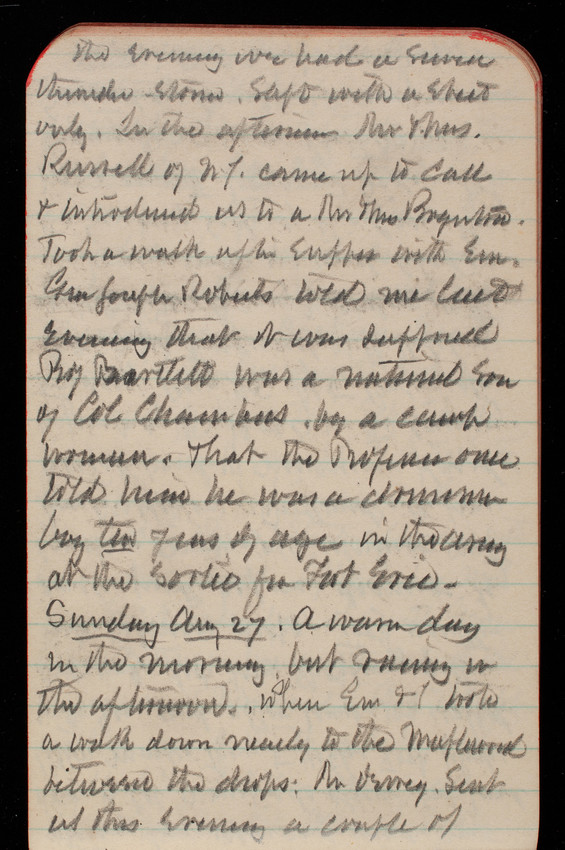 the evening we had a severe
thunder storm. Slept with a sheet
only. In the afternoon Mr & Mrs.
Russell of N.Y. came up to call
& introduced us to a Mr & Mrs Boynton.
Took a walk after supper with Em.
Gen Joseph Roberts told me last
evening that it was supposed
Prof Bartlett was a natural son
of Col Chambers, by a camp
woman. That the Professor once
told him he was a drummer
boy ten years of age in the army
at the Sortie from Fort Erie.
Sunday Aug 27. A warm day
in the morning, but raining in
the afternoon. When Em & I took
a walk down nearly to the Maplewood
between the drops. Mr sent
us this evening a couple of